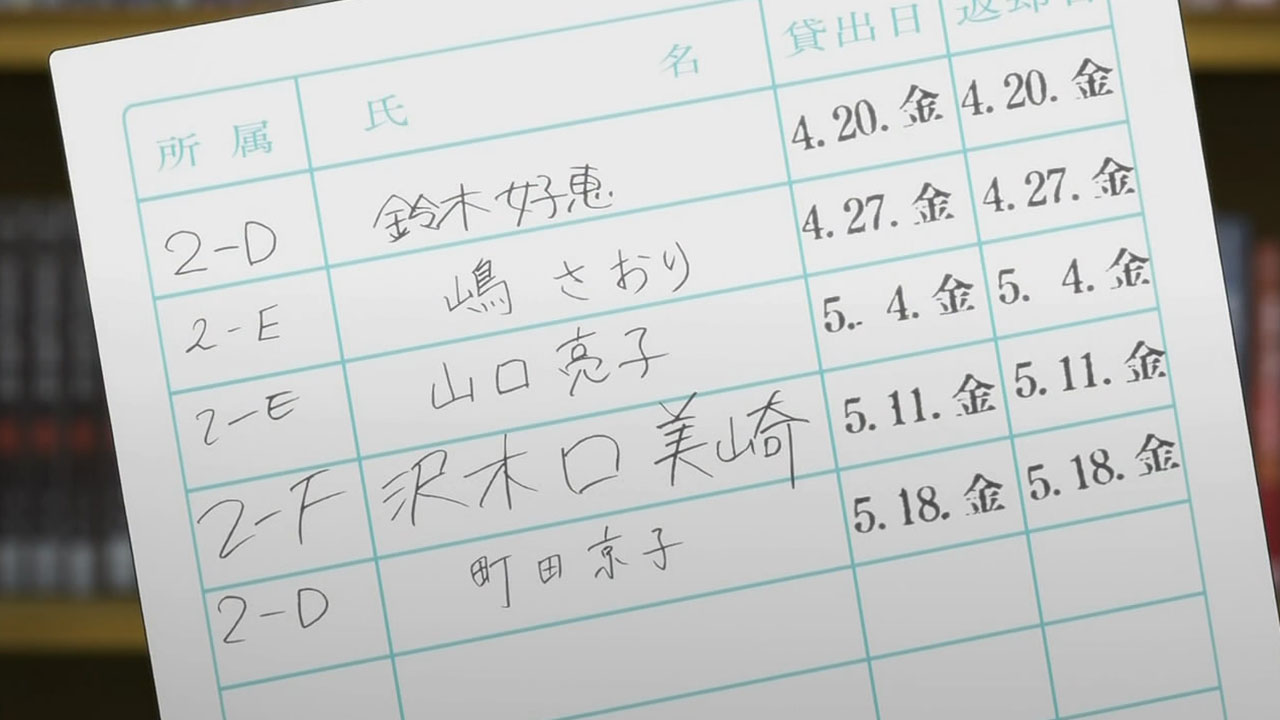 所属 氏名 貸出日 返却日
2-D 鈴木好恵 4.20.金 4.20.金
2-E 嶋さおり 4.27.金 4.27.金
2-E 山口亮子 5. 4.金 5. 4.金
2-F 沢木口美崎 5.11.金 5.11.金
2-D 町田京子 5.18.金 5.18.金